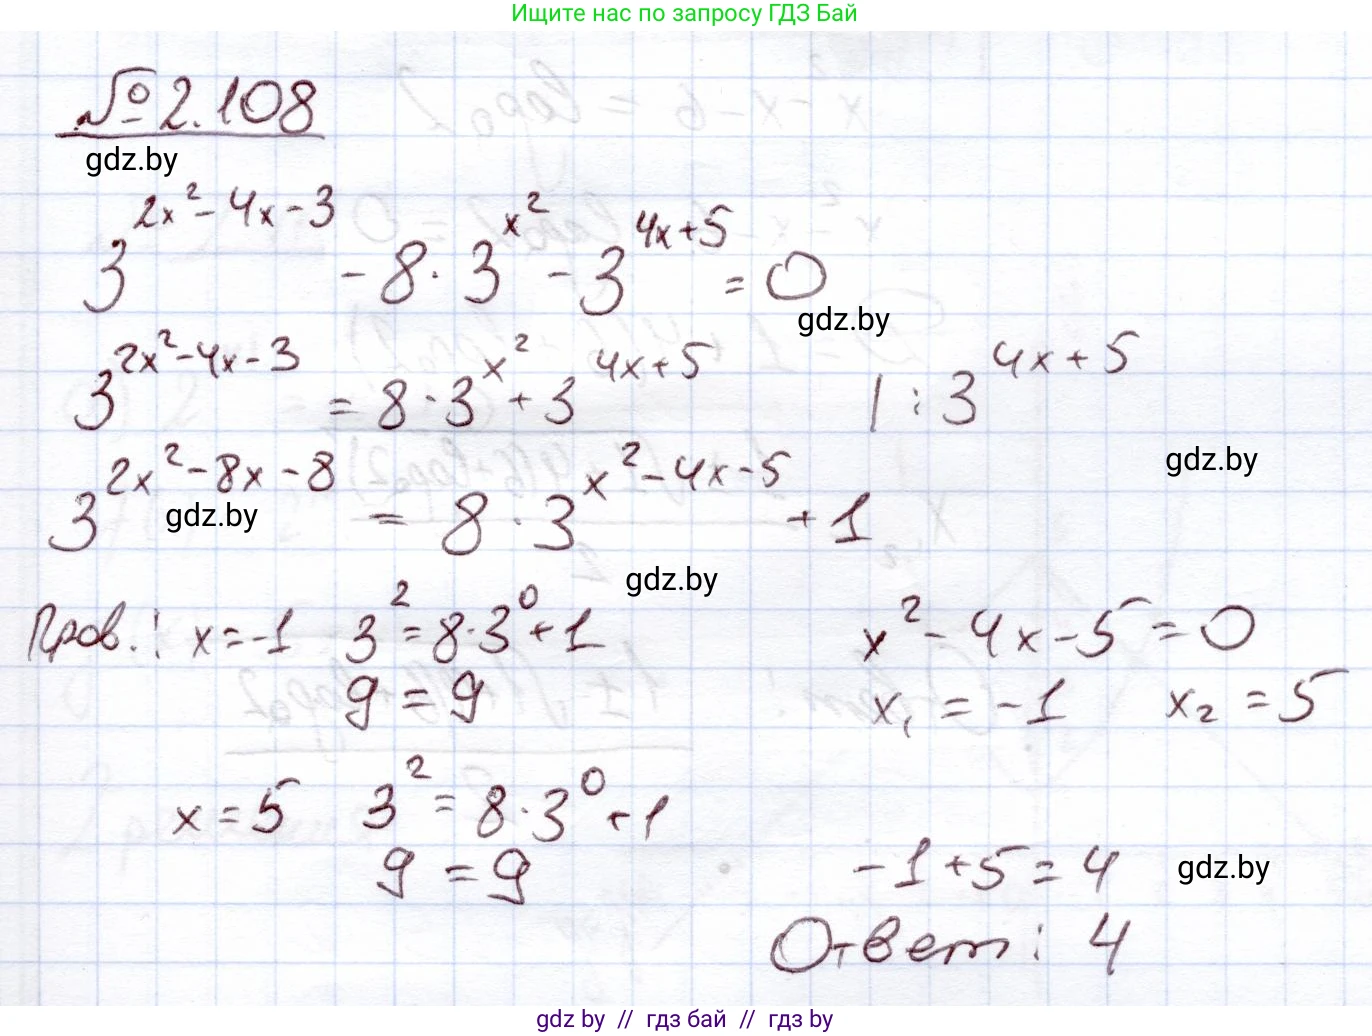 Ищите нас по запросу ГДЗ Бай
№ 2.108
gdz.by
3^{2x²-4x-3} - 8·3^{x²} - 3^{4x+5} = 0
gdz.by
3^{2x²-4x-3} = 8·3^{x²} + 3^{4x+5} | : 3^{4x+5}
gdz.by
3^{2x²-8x-8} = 8·3^{x²-4x-5} + 1
gdz.by
gdz.by
Пров.: x=-1 3² = 8·3⁰+1 x²-4x-5=0
9 = 9 x₁ = -1 x₂ = 5
x = 5 3² = 8·3⁰+1
9 = 9 -1+5=4 gdz.by
Ответ: 4
gdz by // гдз бай // гдз by